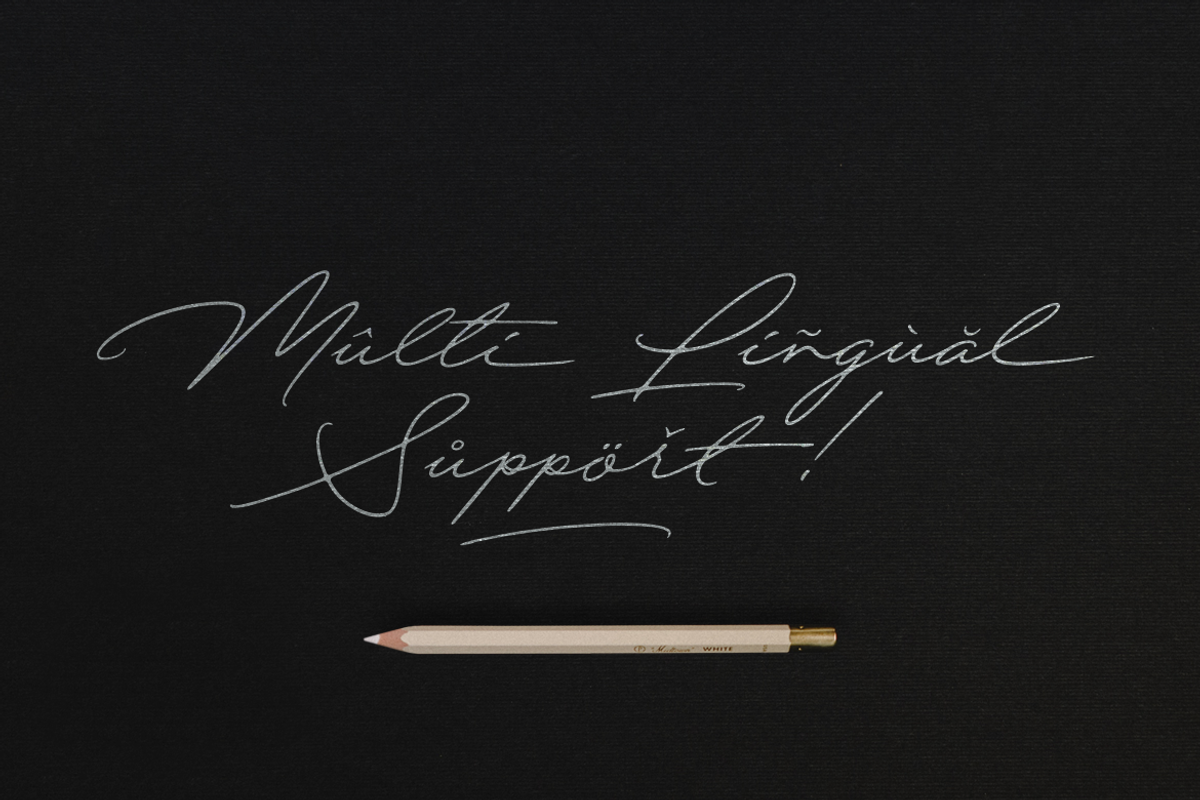 Mûltí Líñgùăl
Sůppöřt!
WHITE